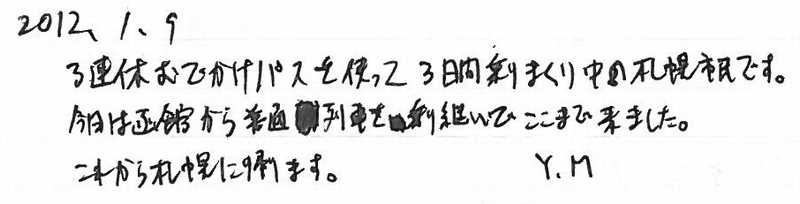 2012、1、9
3連休おでかけパスを使って3日間乗りまくり中の札幌市民です。
今日は函館から普通列車を乗り継いでここまで来ました。
これから札幌に帰ります。
Y.M